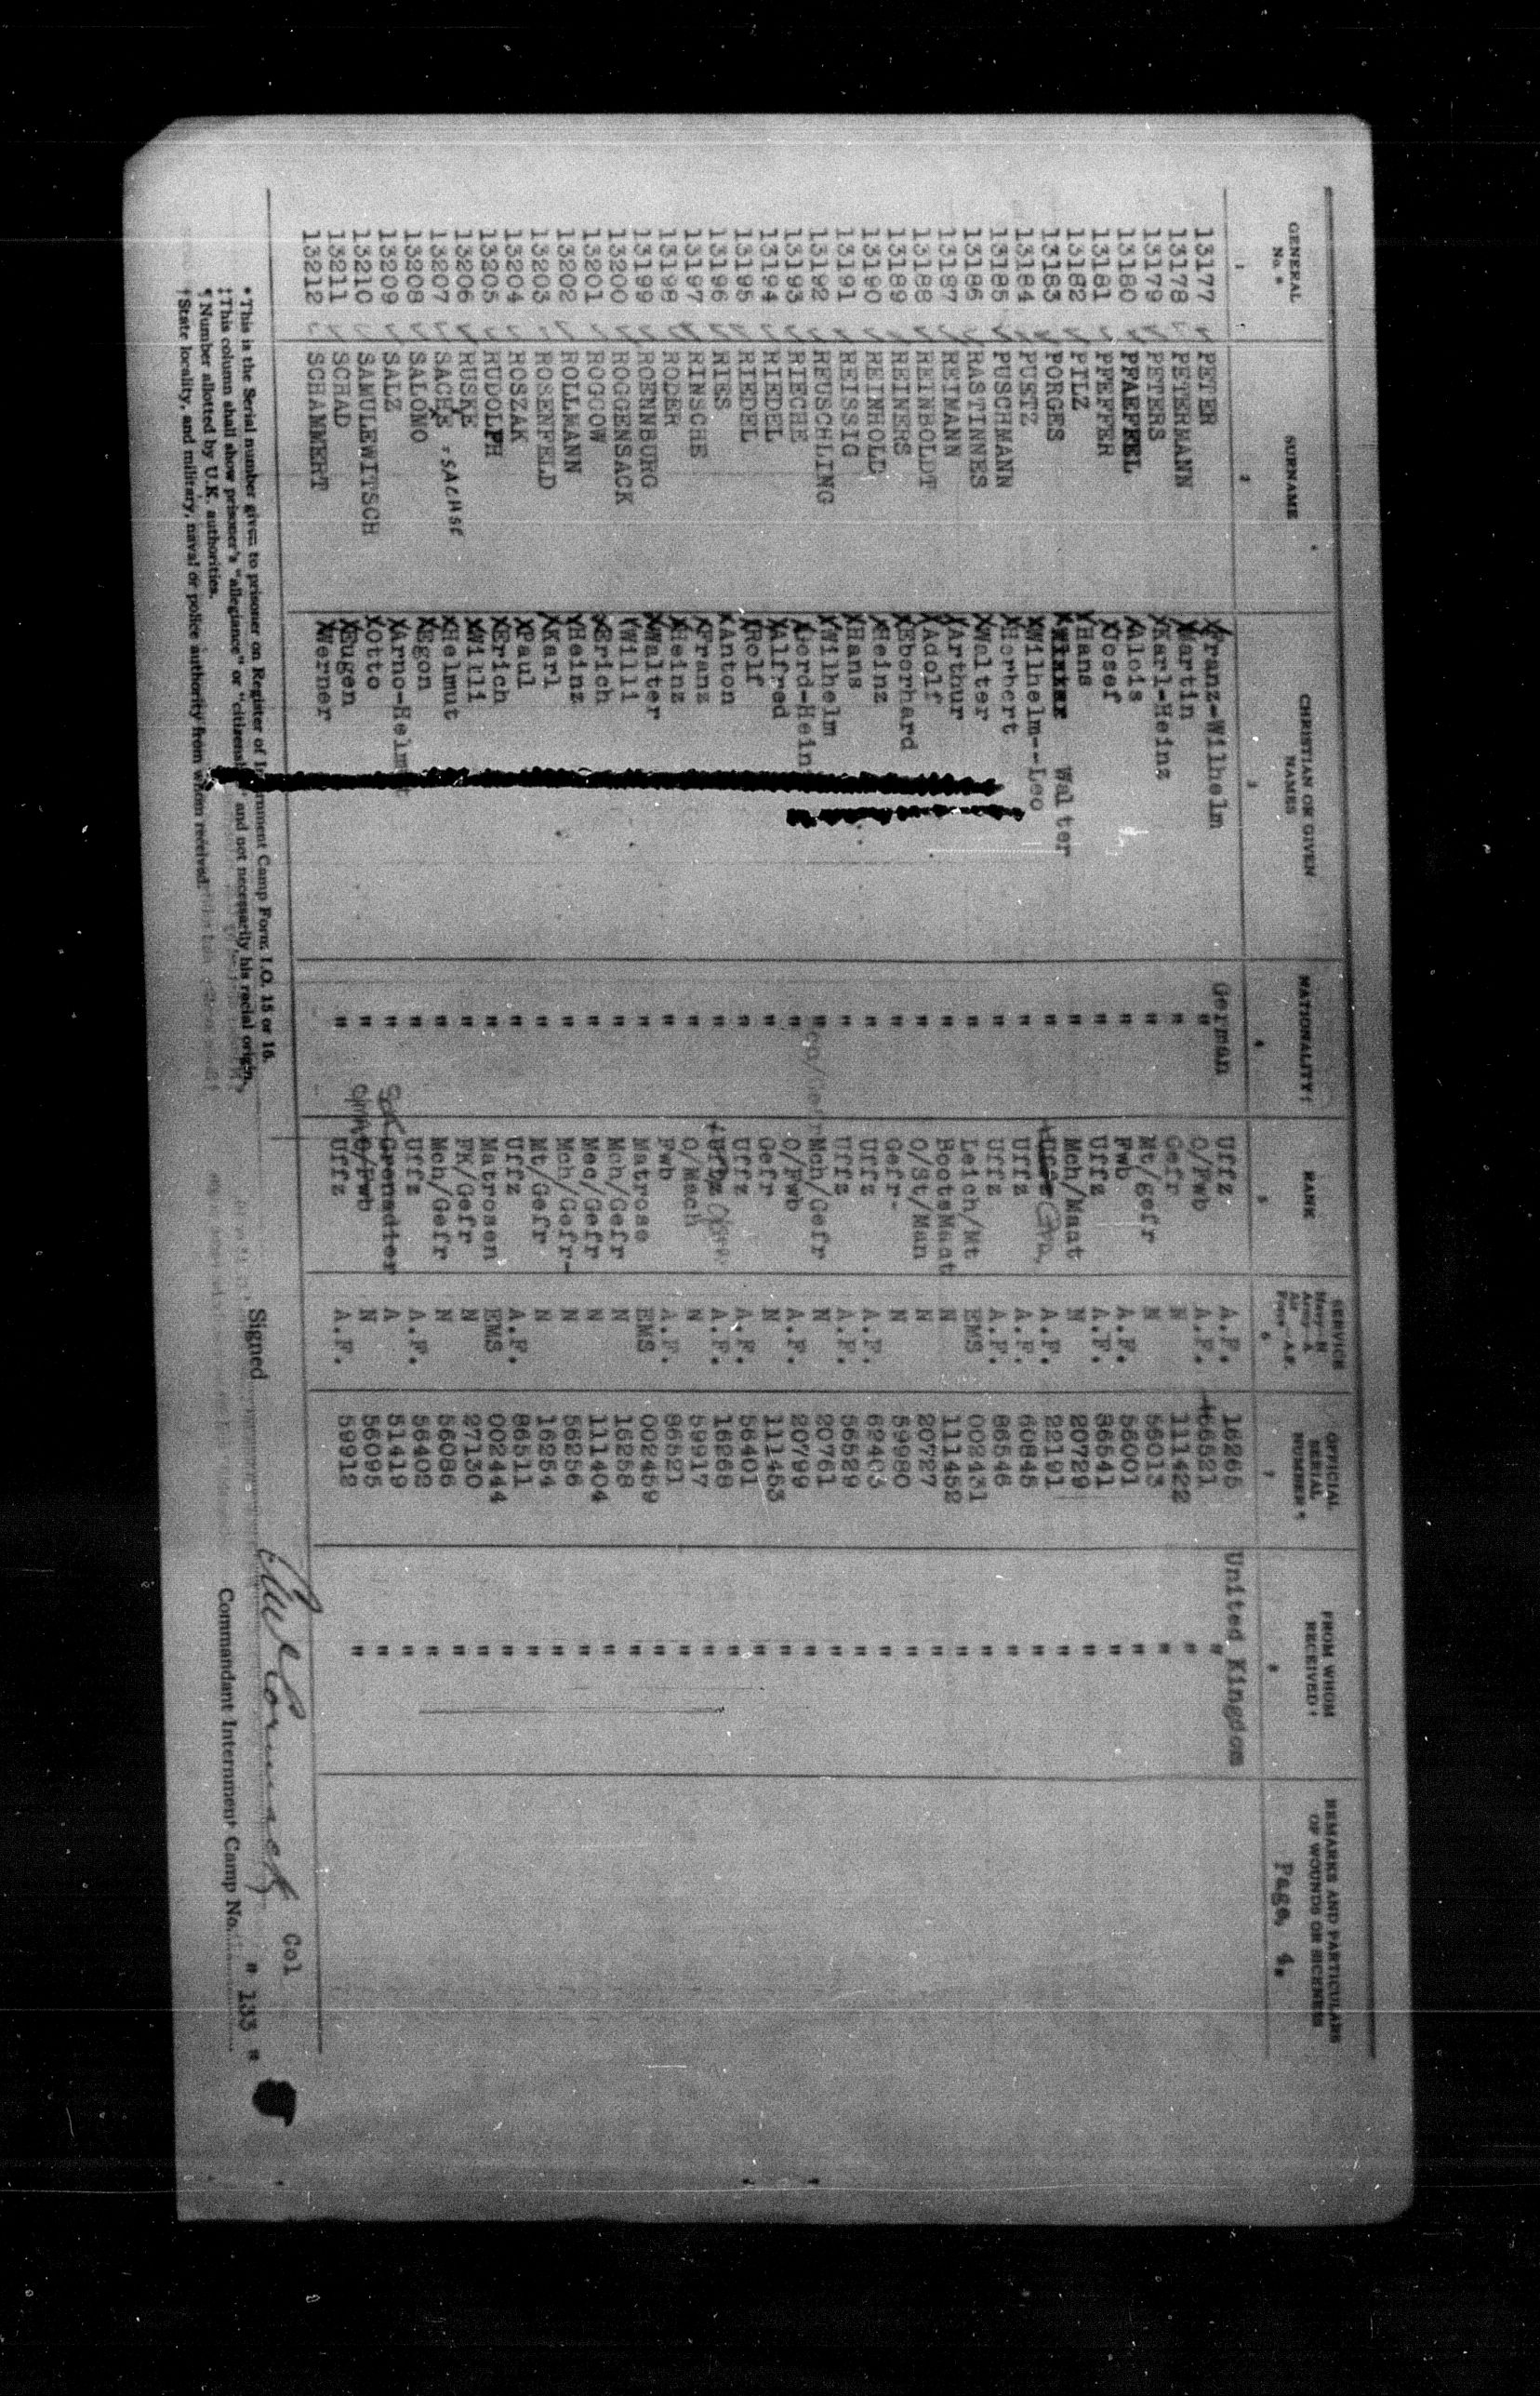 GENERAL No.* SURNAME CHRISTIAN OR GIVEN NAMES NATIONALITY‡ RANK SERVICE Navy—N Army—A Air Force—A.F. OFFICIAL SERIAL NUMBER¶ FROM WHOM RECEIVED† REMARKS AND PARTICULARS OF WOUNDS OR SICKNESS
1 2 3 4 5 6 7 8 Page. 4.
13177 PETER Franz-Wilhelm German Uffz A.F. 16265 United Kingdom
13178 PETERMANN Martin " O/Fwb A.F. 66521 "
13179 PETERS Karl-Heinz " Gefr N 111422 "
13180 PFAEFFEL Alois " Mt/gefr N 56013 "
13181 PFEFFER Josef " Fwb A.F. 56001 "
13182 PILZ Hans " Uffz A.F. 36541 "
13183 PORGES Walter " Mch/Maat N 20729 "
13184 PUETZ Wilhelm--Leo " Uffz A.F. 22191 "
13185 PUSCHMANN Herbert " Uffz A.F. 60845 "
13186 RASTINNES Walter " Uffz A.F. 86546 "
13187 REIMANN Arthur " Leich/Mt EMS 002431 "
13188 REINBOLDT Adolf " BootsMaat N 111452 "
13189 REINERS Eberhard " O/St/Man N 20727 "
13190 REINHOLD Heinz " Gefr- N 59980 "
13191 REISSIG Hans " Uffz A.F. 62403 "
13192 REUSCHLING Wilhelm " Uffz A.F. 56529 "
13193 RIECHE Gerd-Hein " Mch/Gefr N 20761 "
13194 RIEDEL Alfred " O/Fwb A.F. 20799 "
13195 RIEDEL Rolf " Gefr N 111453 "
13196 RIES Anton " Uffz A.F. 56401 "
13197 RINSCHE Franz " Uffz A.F. 16268 "
13198 RODER Heinz " O/Mach N 59917 "
13199 ROENNBURG Walter " Fwb A.F. 86521 "
13200 ROGGENSACK Willi " Matrose EMS 002459 "
13201 ROGGOW Erich " Mch/Gefr N 16258 "
13202 ROLLMANN Heinz " Mec/Gefr N 111404 "
13203 ROSENFELD Karl " Mch/Gefr- N 56256 "
13204 ROSZAK Paul " Mt/Gefr N 16254 "
13205 RUDOLPH Erich " Uffz A.F. 86511 "
13206 RUSKE Willi " Matrosen EMS 002444 "
13207 SACHE = SACHSE Helmut " FK/Gefr N 27130 "
13208 SALOMO Egon " Mch/Gefr N 56086 "
13209 SALZ Arno-Helmut " Uffz A.F. 56402 "
13210 SAMULEWITSCH Otto " Grenadier A 51419 "
13211 SCHAD Eugen " O/Fwb N 56095 "
13212 SCHAMMERT Werner " Uffz A.F. 59912 "
*This is the Serial number given to prisoner on Register of Internment Camp Form I.O. 15 or 16.
‡This column shall show prisoner's "allegiance" or "citizenship" and not necessarily his racial origin.
¶Number allotted by U.K. authorities.
†State locality, and military, naval or police authority from whom received.
Signed Col
Commandant Internment Camp No. " 133 "